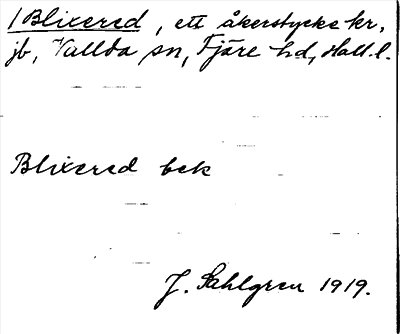 /Blixered, ett åkerstycke kr,
jb, Vallda sn, Fjäre hd, Hall.l.
Blixered bek
J. Sahlgren 1919.